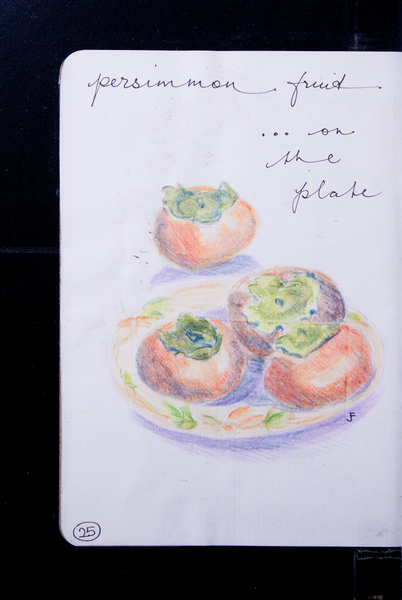 persimmon fruit
... on
the
plate
JF
25